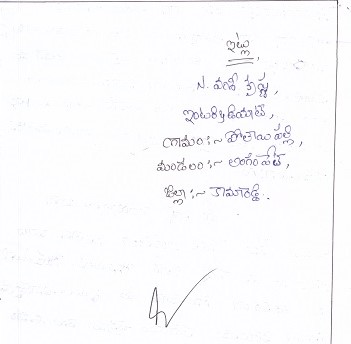 ఇట్లు,
N. వంశీ కృష్ణ,
ఇంటర్మీడియేట్,
గ్రామం :~ పోతాయిపల్లి,
మండలం :~ లింగంపేట్,
జిల్లా :~ కామారెడ్డి.